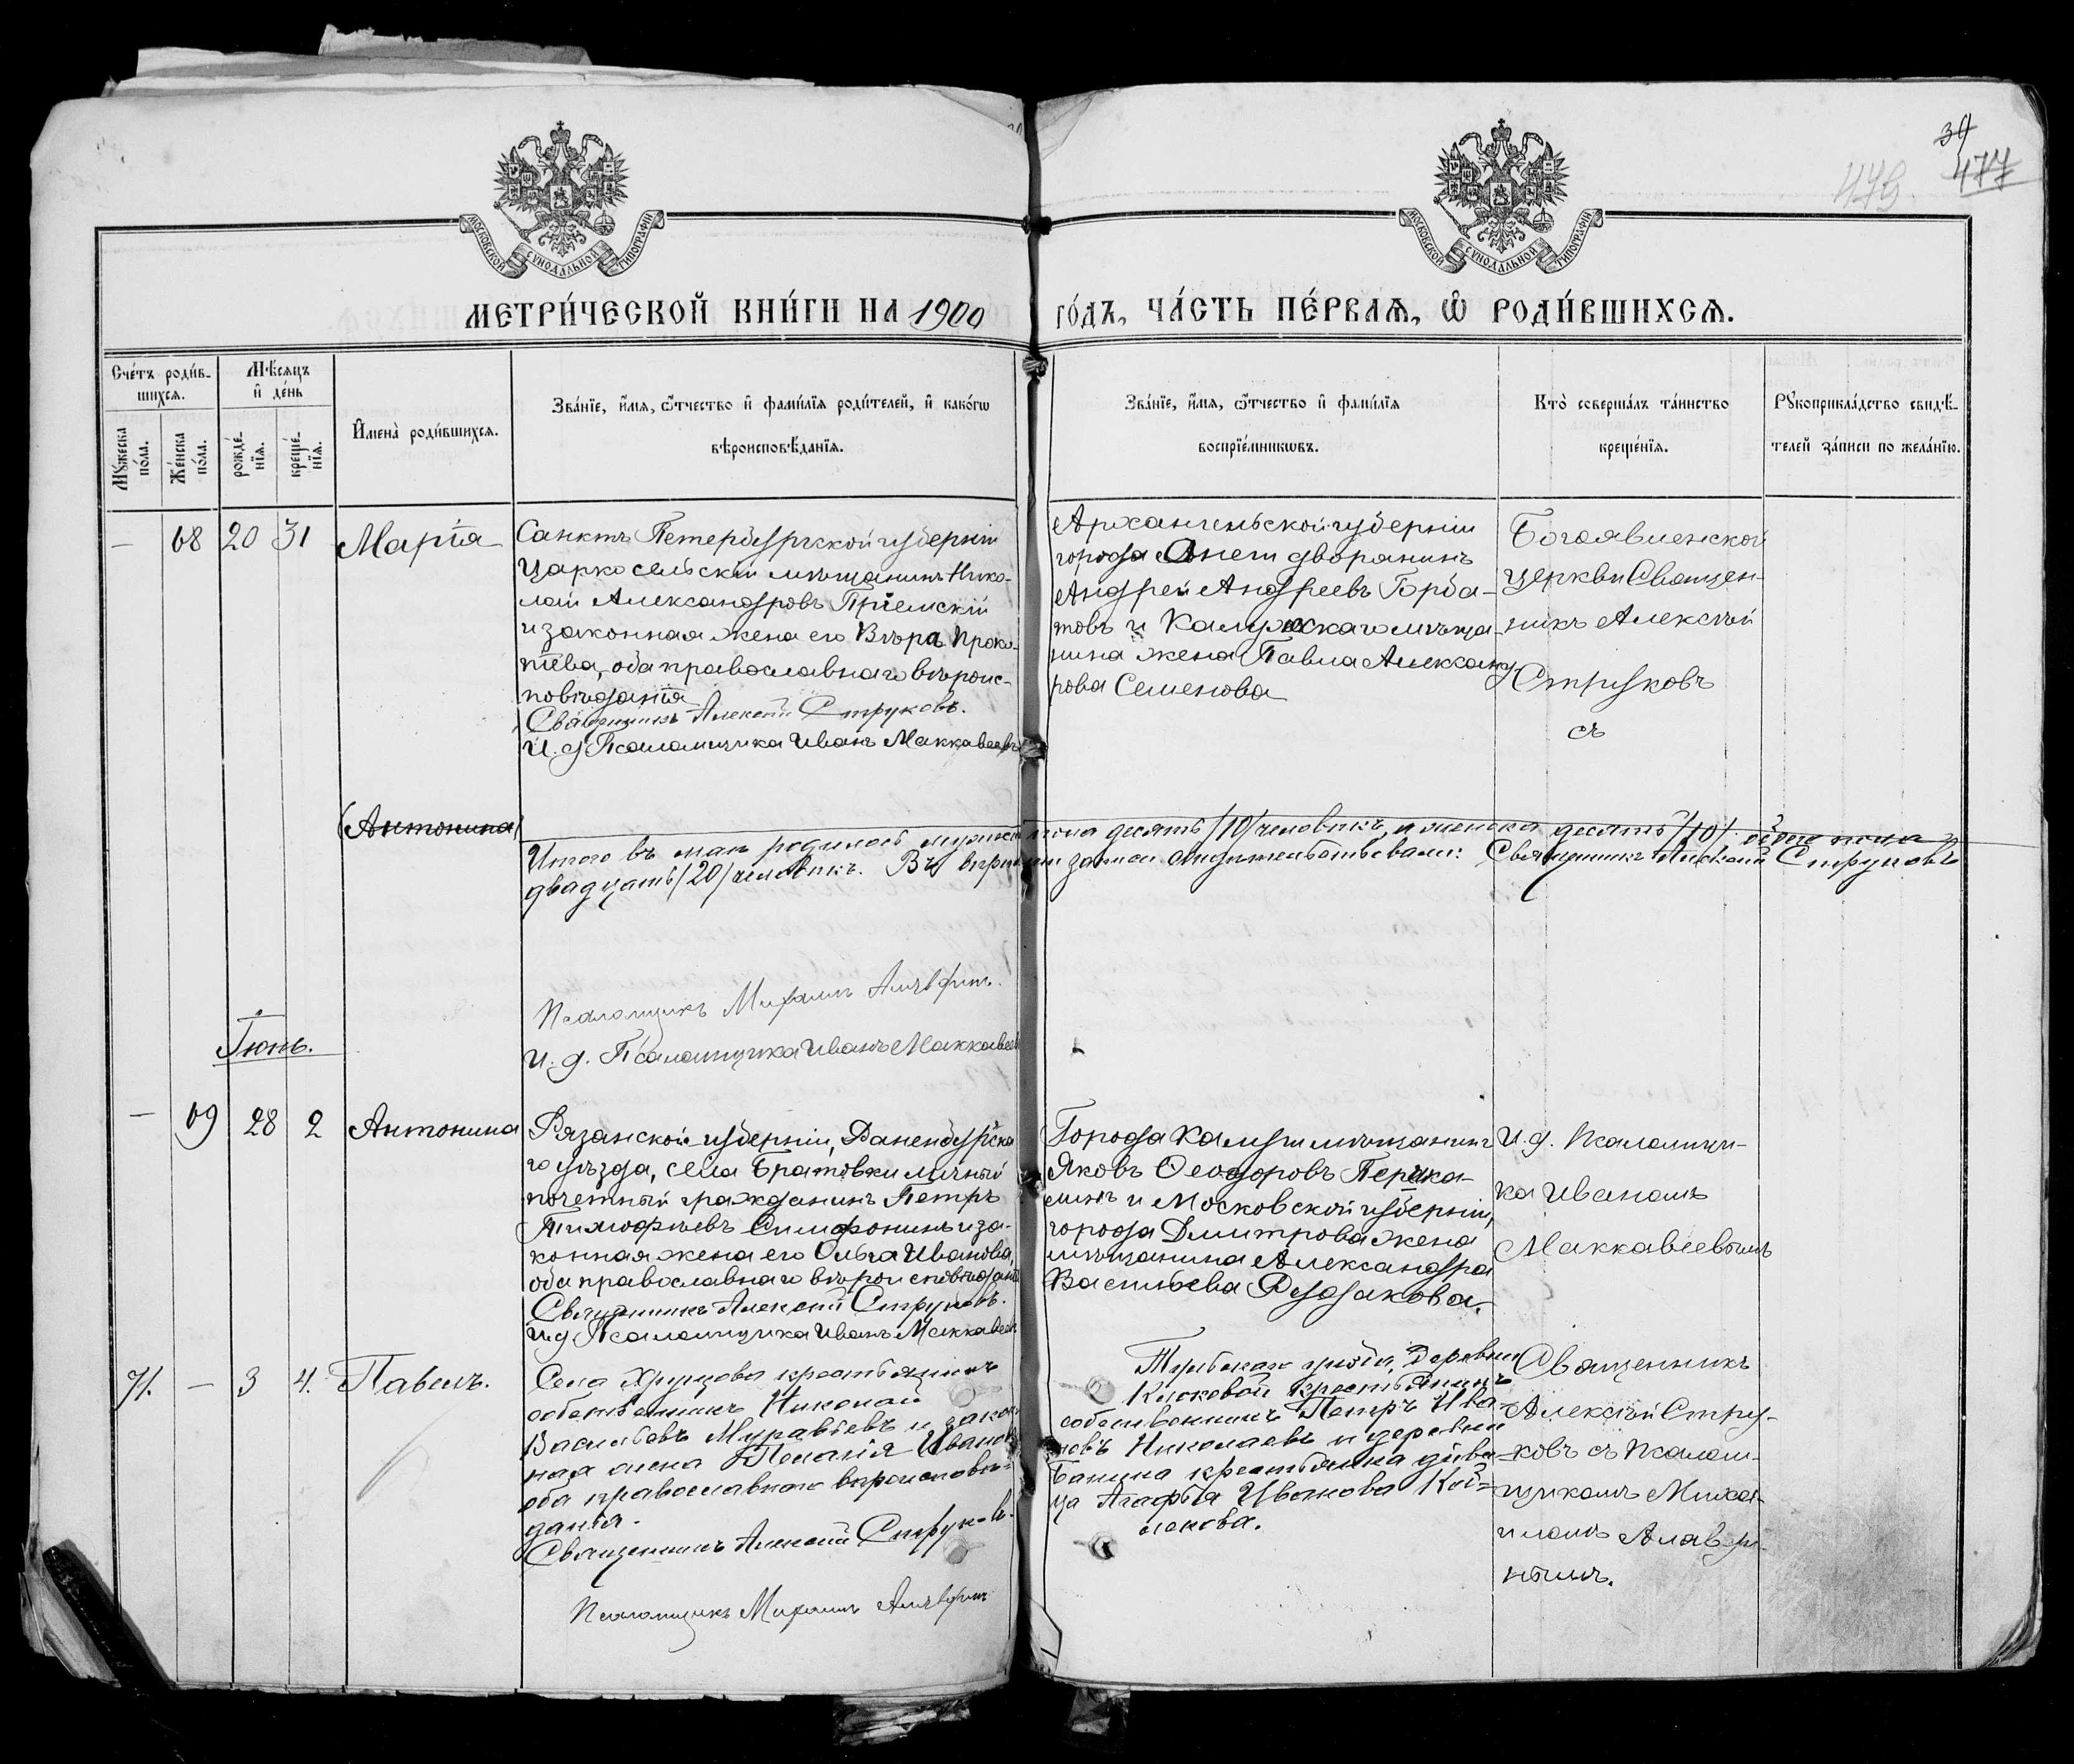 39
477
479
МОСКОВСКОЙ СѴНОДАЛЬНОЙ ТИПОГРАФІИ
МОСКОВСКОЙ СѴНОДАЛЬНОЙ ТИПОГРАФІИ
МЕТРИ́ЧЕСКОЙ КНИ́ГИ НА 1900 ГО́ДЪ, ЧА́СТЬ ПЕ́РВАѦ, Ѡ РОДИ́ВШИХСѦ.
Сче́тъ роди́в-
шихсѧ.
Мꙋжеска по́ла.
Же́нска по́ла.
Мѣ́сѧцъ
и҆ де́нь
рожде́-
нїѧ.
креще́-
нїѧ.
И҆мена̀ роди́вшихсѧ.
Зва́нїе, и҆́мѧ, ѻ҆́тчество и҆ фами́лїѧ роди́телей, и҆ како́гѡ
вѣроисповѣ́данїѧ.
Зва́нїе, и҆́мѧ, ѻ҆́тчество и҆ фами́лїѧ
воспрїе́мникѡвъ.
Кто̀ соверша́лъ та́инство
креще́нїѧ.
Рꙋкоприкла́дство свидѣ́-
телей за́писи по жела́нїю.
— 68 20 31 Марія
Санктъ Петербургской губерніи
Царкосельскій мѣщанинъ Нико-
лай Александровъ Пріемскій
и законная жена его Вѣра Проко-
піева, оба православнаго вѣроис-
повѣданія
Священникъ Алексій Струковъ.
И. д. Псаломщика Иванъ Маккавеевъ
Архангельской губерніи
города Онеги дворянинъ
Андрей Андреевъ Горба-
товъ и Калужскаго мѣща-
нина жена Павла Александ-
рова Семенова
Богоявленской
церкви Священ-
никъ Алексѣй
Струковъ
съ
(Антонина)
Итого въ маѣ родилось мужеска пола десять /10/ человѣкъ, и женска десять /10/. обоего пола
двадцать /20/ человѣкъ. Въ вѣрности записи свидѣтельствовали: Священникъ Алексій Струковъ
Псаломщикъ Михаилъ
И. д. Псаломщика Иванъ Маккавеевъ
Іюнь.
— 69 28 2 Антонина
Рязанской губерніи, Раненбургска-
го уѣзда, села Братовки личный
почетный гражданинъ Петръ
Тимофѣевъ Симфонинъ и за-
конная жена его Ольга Иванова,
оба православнаго вѣроисповѣданія
Священникъ Алексій Струковъ.
И. д. Псаломщика Иванъ Маккавеевъ
Города Калуги мѣщанинъ
Яковъ Ѳеодоровъ
и Московской губерніи,
города Дмитрова жена
мѣщанина Александра
Васильева
И. д. Псаломщи-
ка Иваномъ
Маккавеевымъ
71. — 3 4. Павелъ.
Села Хрущова крестьянинъ
собственникъ Николай
Васильевъ Муравьевъ и закон-
ная жена Пелагія Иванова
оба православнаго вѣроисповѣ-
данія.
Священникъ Алексій Струковъ.
Псаломщикъ Михаилъ
Тульскаго уѣзда, деревни
крестьянинъ
собственникъ Петръ Ива-
новъ Николаевъ и деревни
Банина крестьянка дѣви-
ца Агафья Иванова
Священникъ
Алексѣй Стру-
ковъ съ псалом-
щикомъ Миха-
иломъ